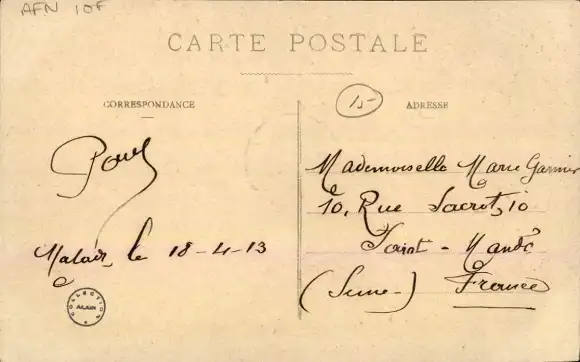 AFN 10F
CARTE POSTALE
CORRESPONDANCE
15-
ADRESSE
Mademoiselle Marie Garnier
10, Rue Sacrot, 10
Saint-Mandé
(Seine-) France
le 18-4-13
COLLECTION
ALAIN